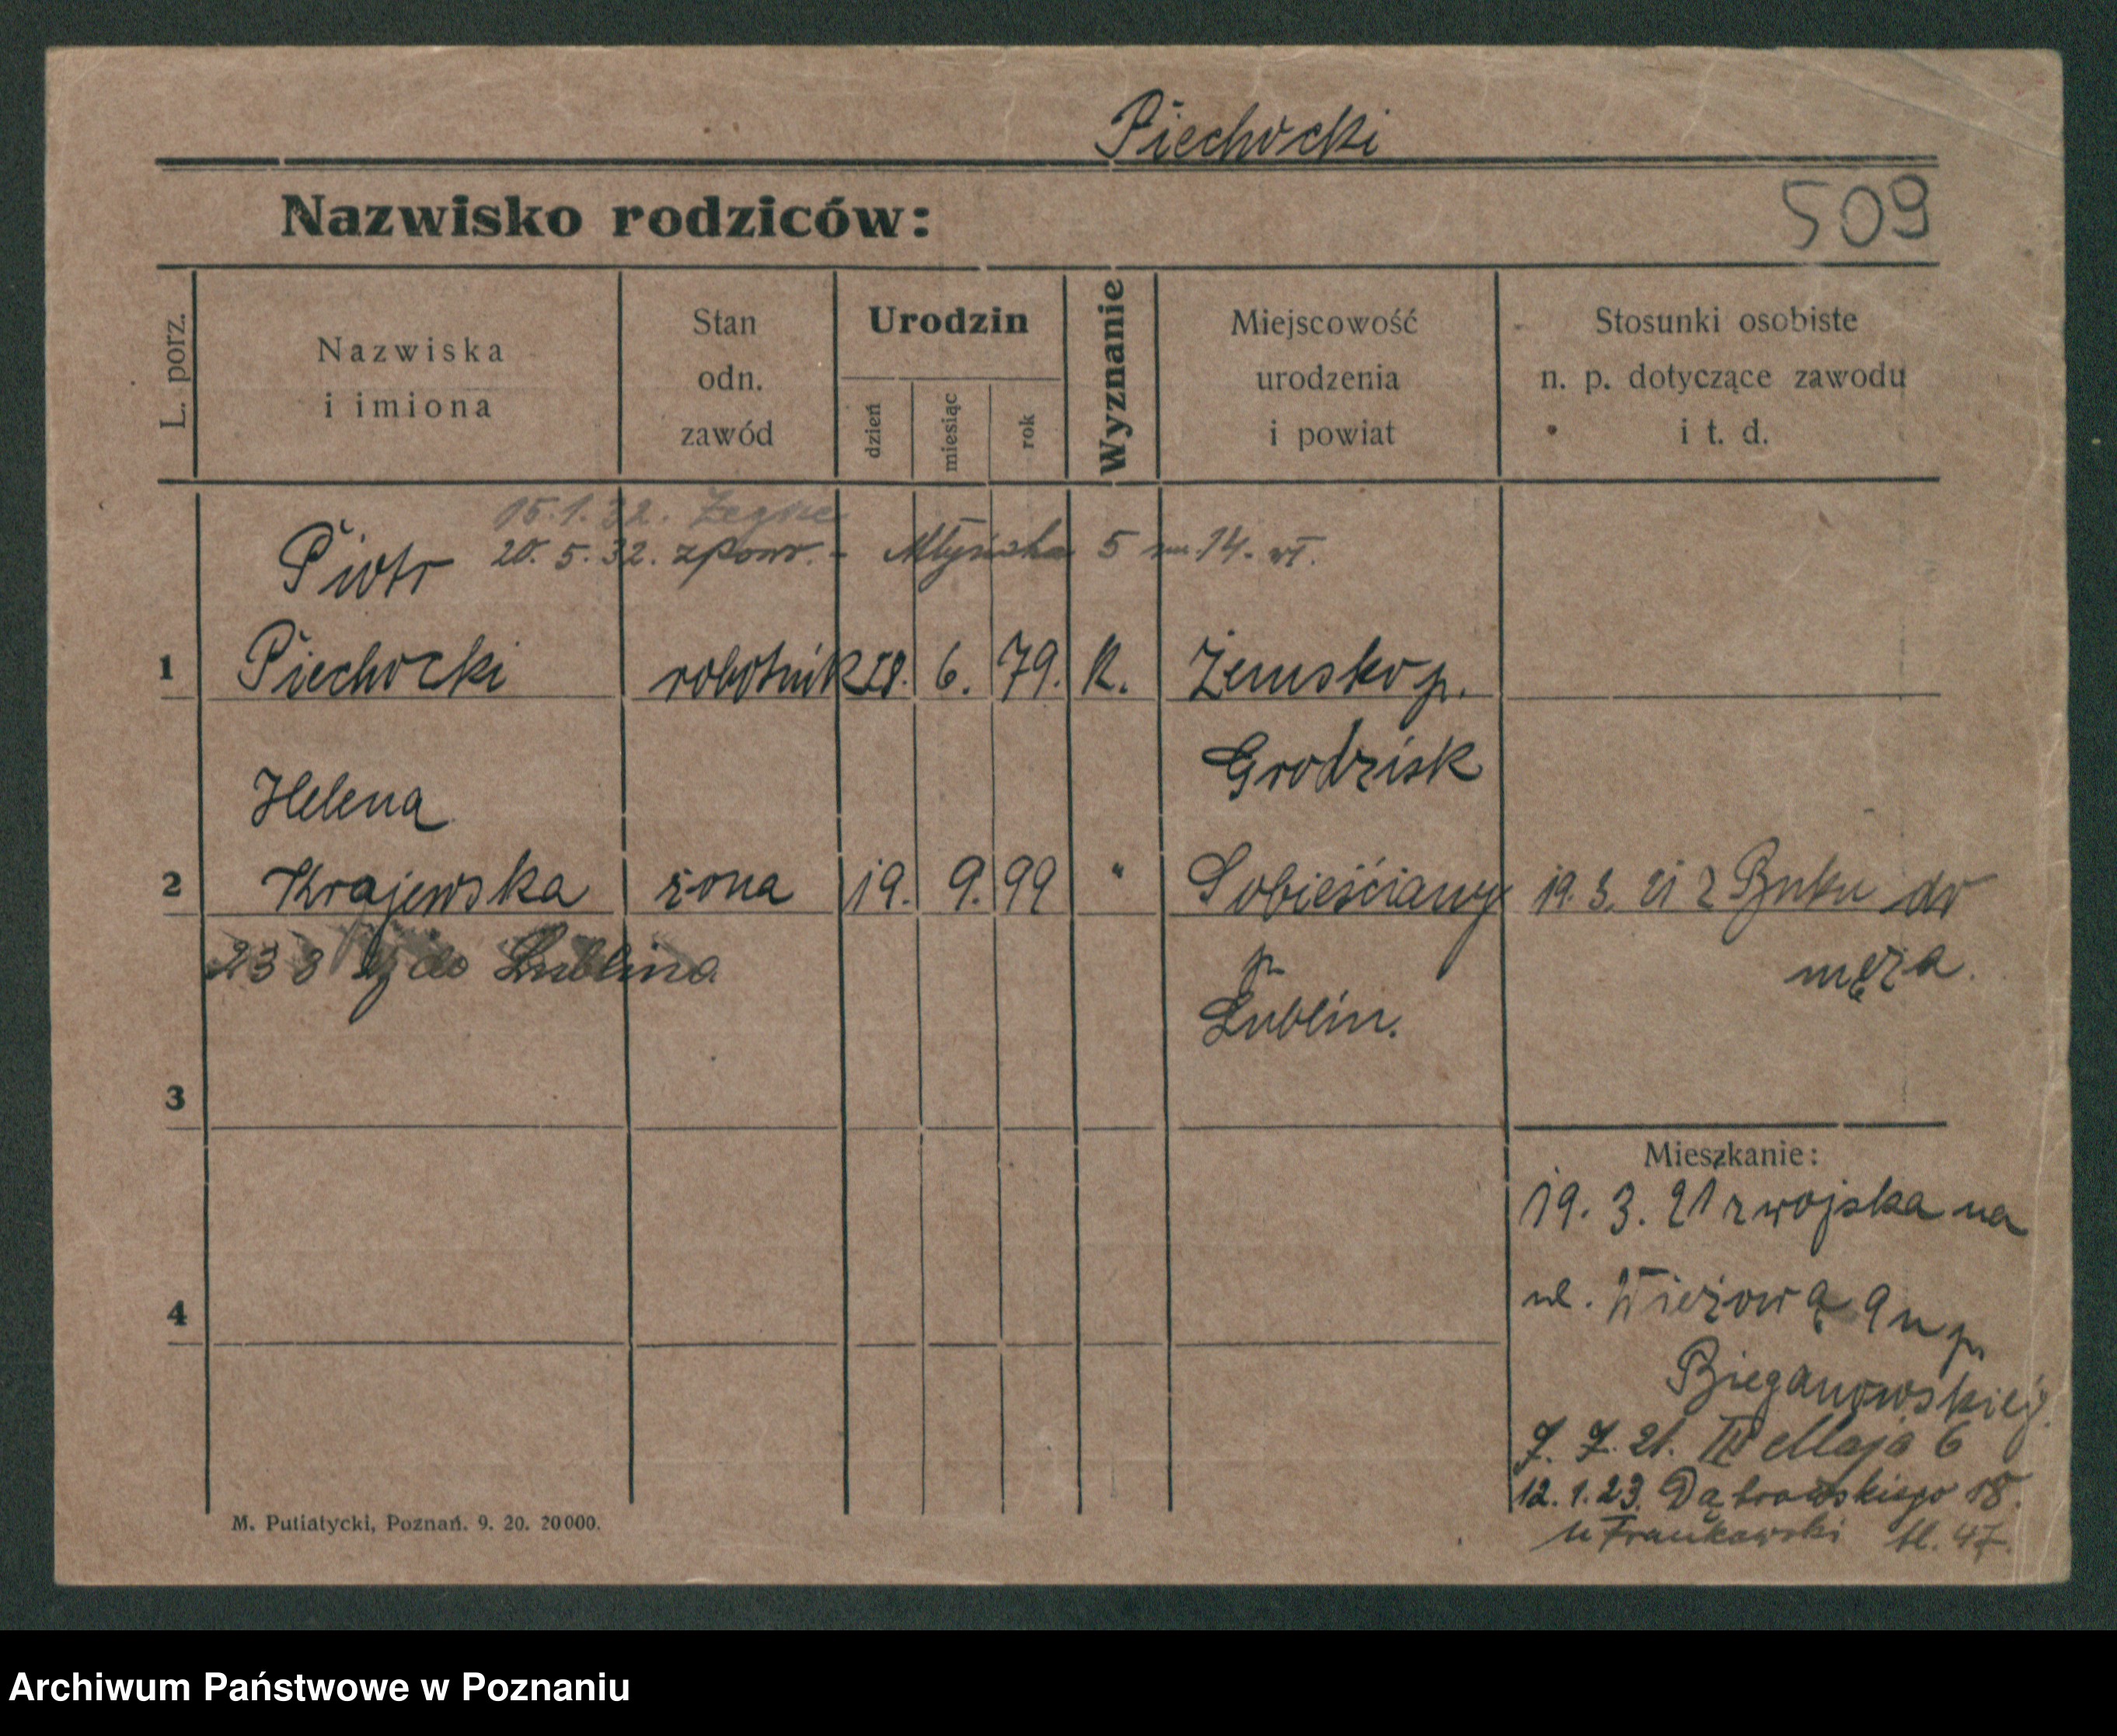 Piechocki
Nazwisko rodziców:
509
L. porz.
Nazwiska
i imiona
Stan
odn.
zawód
Urodzin
dzień
miesiąc
rok
Wyznanie
Miejscowość
urodzenia
i powiat
Stosunki osobiste
n. p. dotyczące zawodu
i t. d.
15.1.32.
Piotr 20. 5. 32. zpow. - Młyńska 5 m. 14. wł.
1 Piechocki robotnik 28. 6. 79. K. Żemsko p.
Grodzisk
Helena
2 Krajewska żona 19. 9. 99 " Sobieściany 19. 3. 21 z Buku do
męża.
do Lublina
p.
Lublin.
3
Mieszkanie:
19. 3. 21 z wojska na
ul. Wieżową 9 u p.
Bieganowskiej.
4
7. 7. 21. Maja 6
12. 1. 23. Dąbrowskiego 18.
u Frankowski bl. 47.
M. Putiatycki, Poznań. 9. 20. 20000.
Archiwum Państwowe w Poznaniu